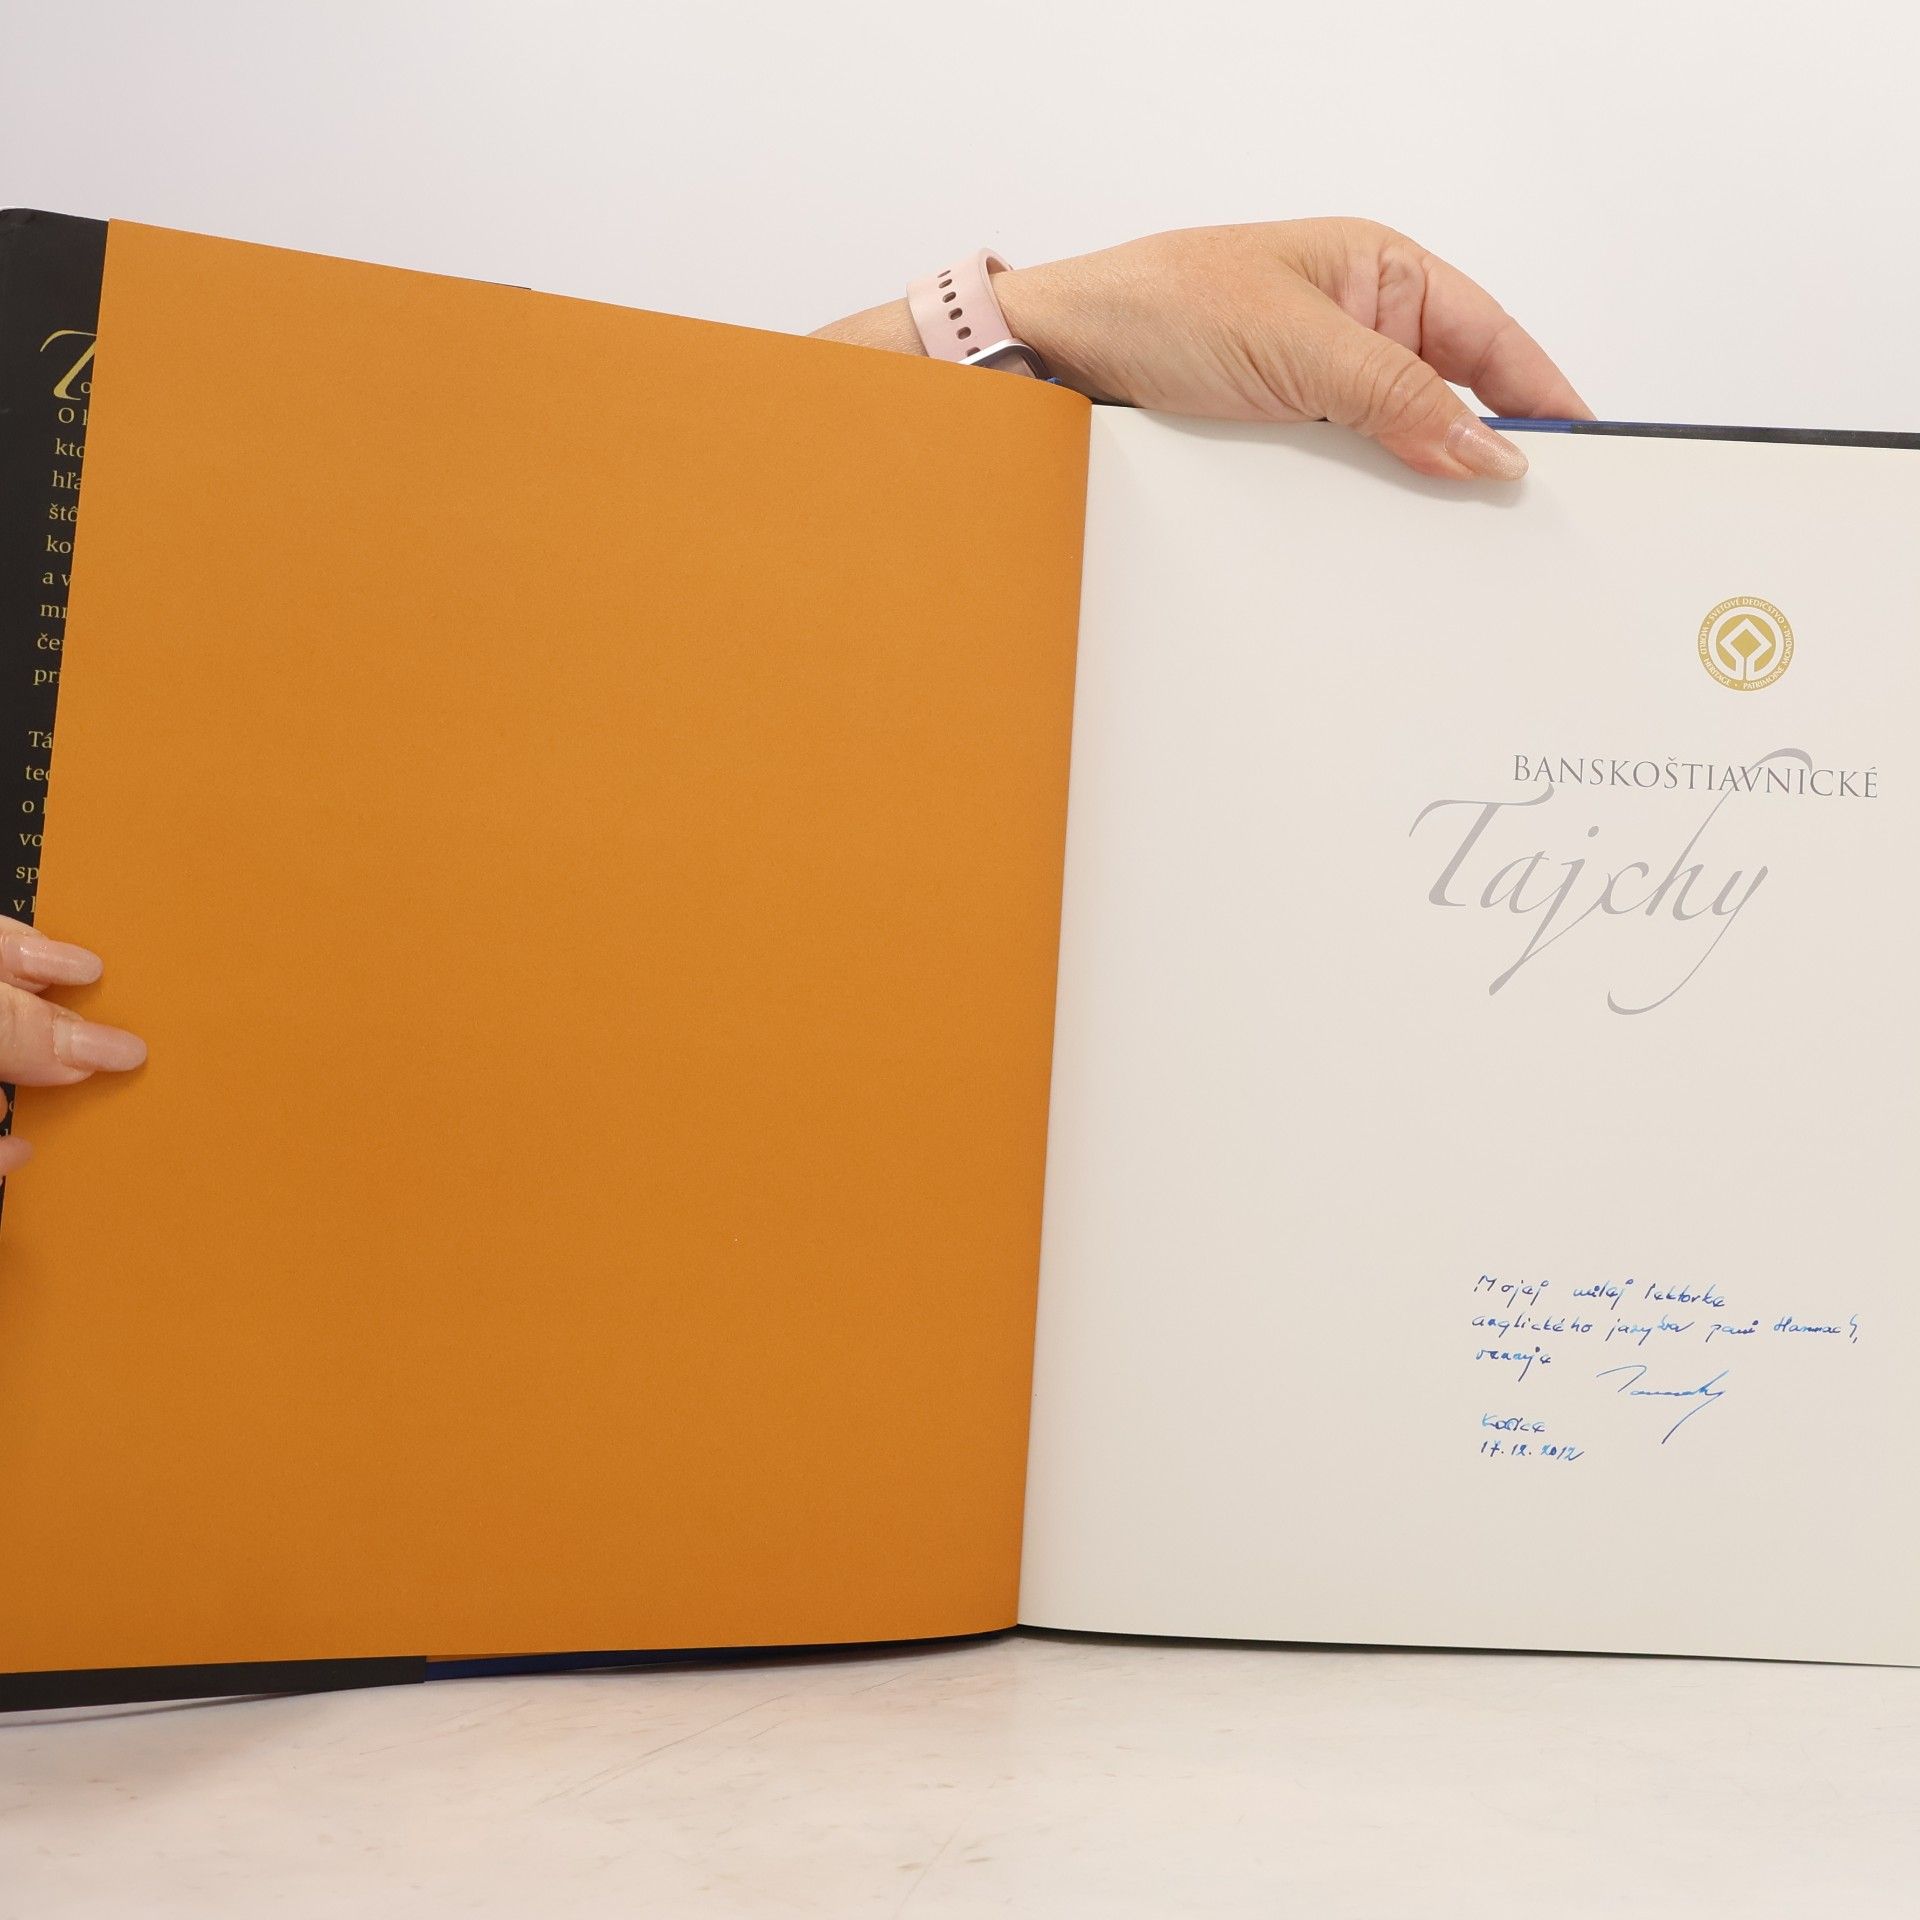 To
O
kto
hľa
štô
ko
a v
mn
čer
pri
Tá
tec
o
vo
sp
v
SVETOVÉ DEDIČSTVO • PATRIMOINE MONDIAL • WORLD HERITAGE •
BANSKOŠTIAVNICKÉ
Tajchy
Mojej milej lektorke
anglického jazyka pani Hannach,
venuje
Košice
17. 12. 2012